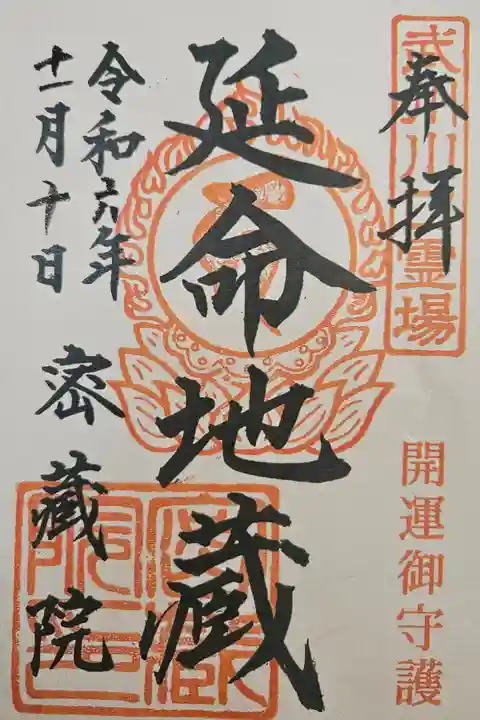 奉拝
開運御守護
延命地蔵
令和六年
十一月十日
密蔵院